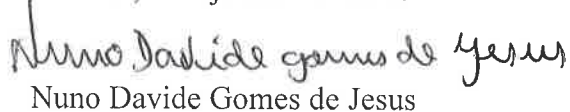 Nuno Davide gomes de Jesus
Nuno Davide Gomes de Jesus